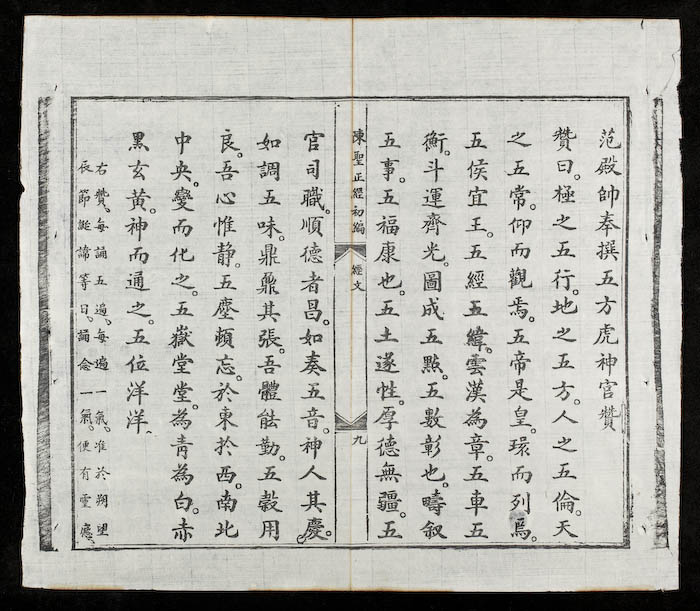 范殿帥奉撰五方虎神官贊
贊曰。極之五行。地之五方。人之五倫。天
之五常。仰而觀焉。五帝是皇。環而列焉。
五侯宜王。五經五緯。雲漢為章。五車五
衡。斗運齊光。圖成五點。五數彰也。疇叙
五事。五福康也。五土遂性。厚德無疆。五
陳聖正經初編
經文
九
官司職。順德者昌。如奏五音。神人其慶。
如調五味。鼎鼐其張。吾體能勤。五穀用
良。吾心惟静。五塵頓忘。於東於西。南北
中央。變而化之。五嶽堂堂。為青為白。赤
黑玄黃。神而通之。五位洋洋。
右贊。每誦五遍。每遍一氣。准於朔望
辰節誕諱等日。誦念一氣。便有靈應。